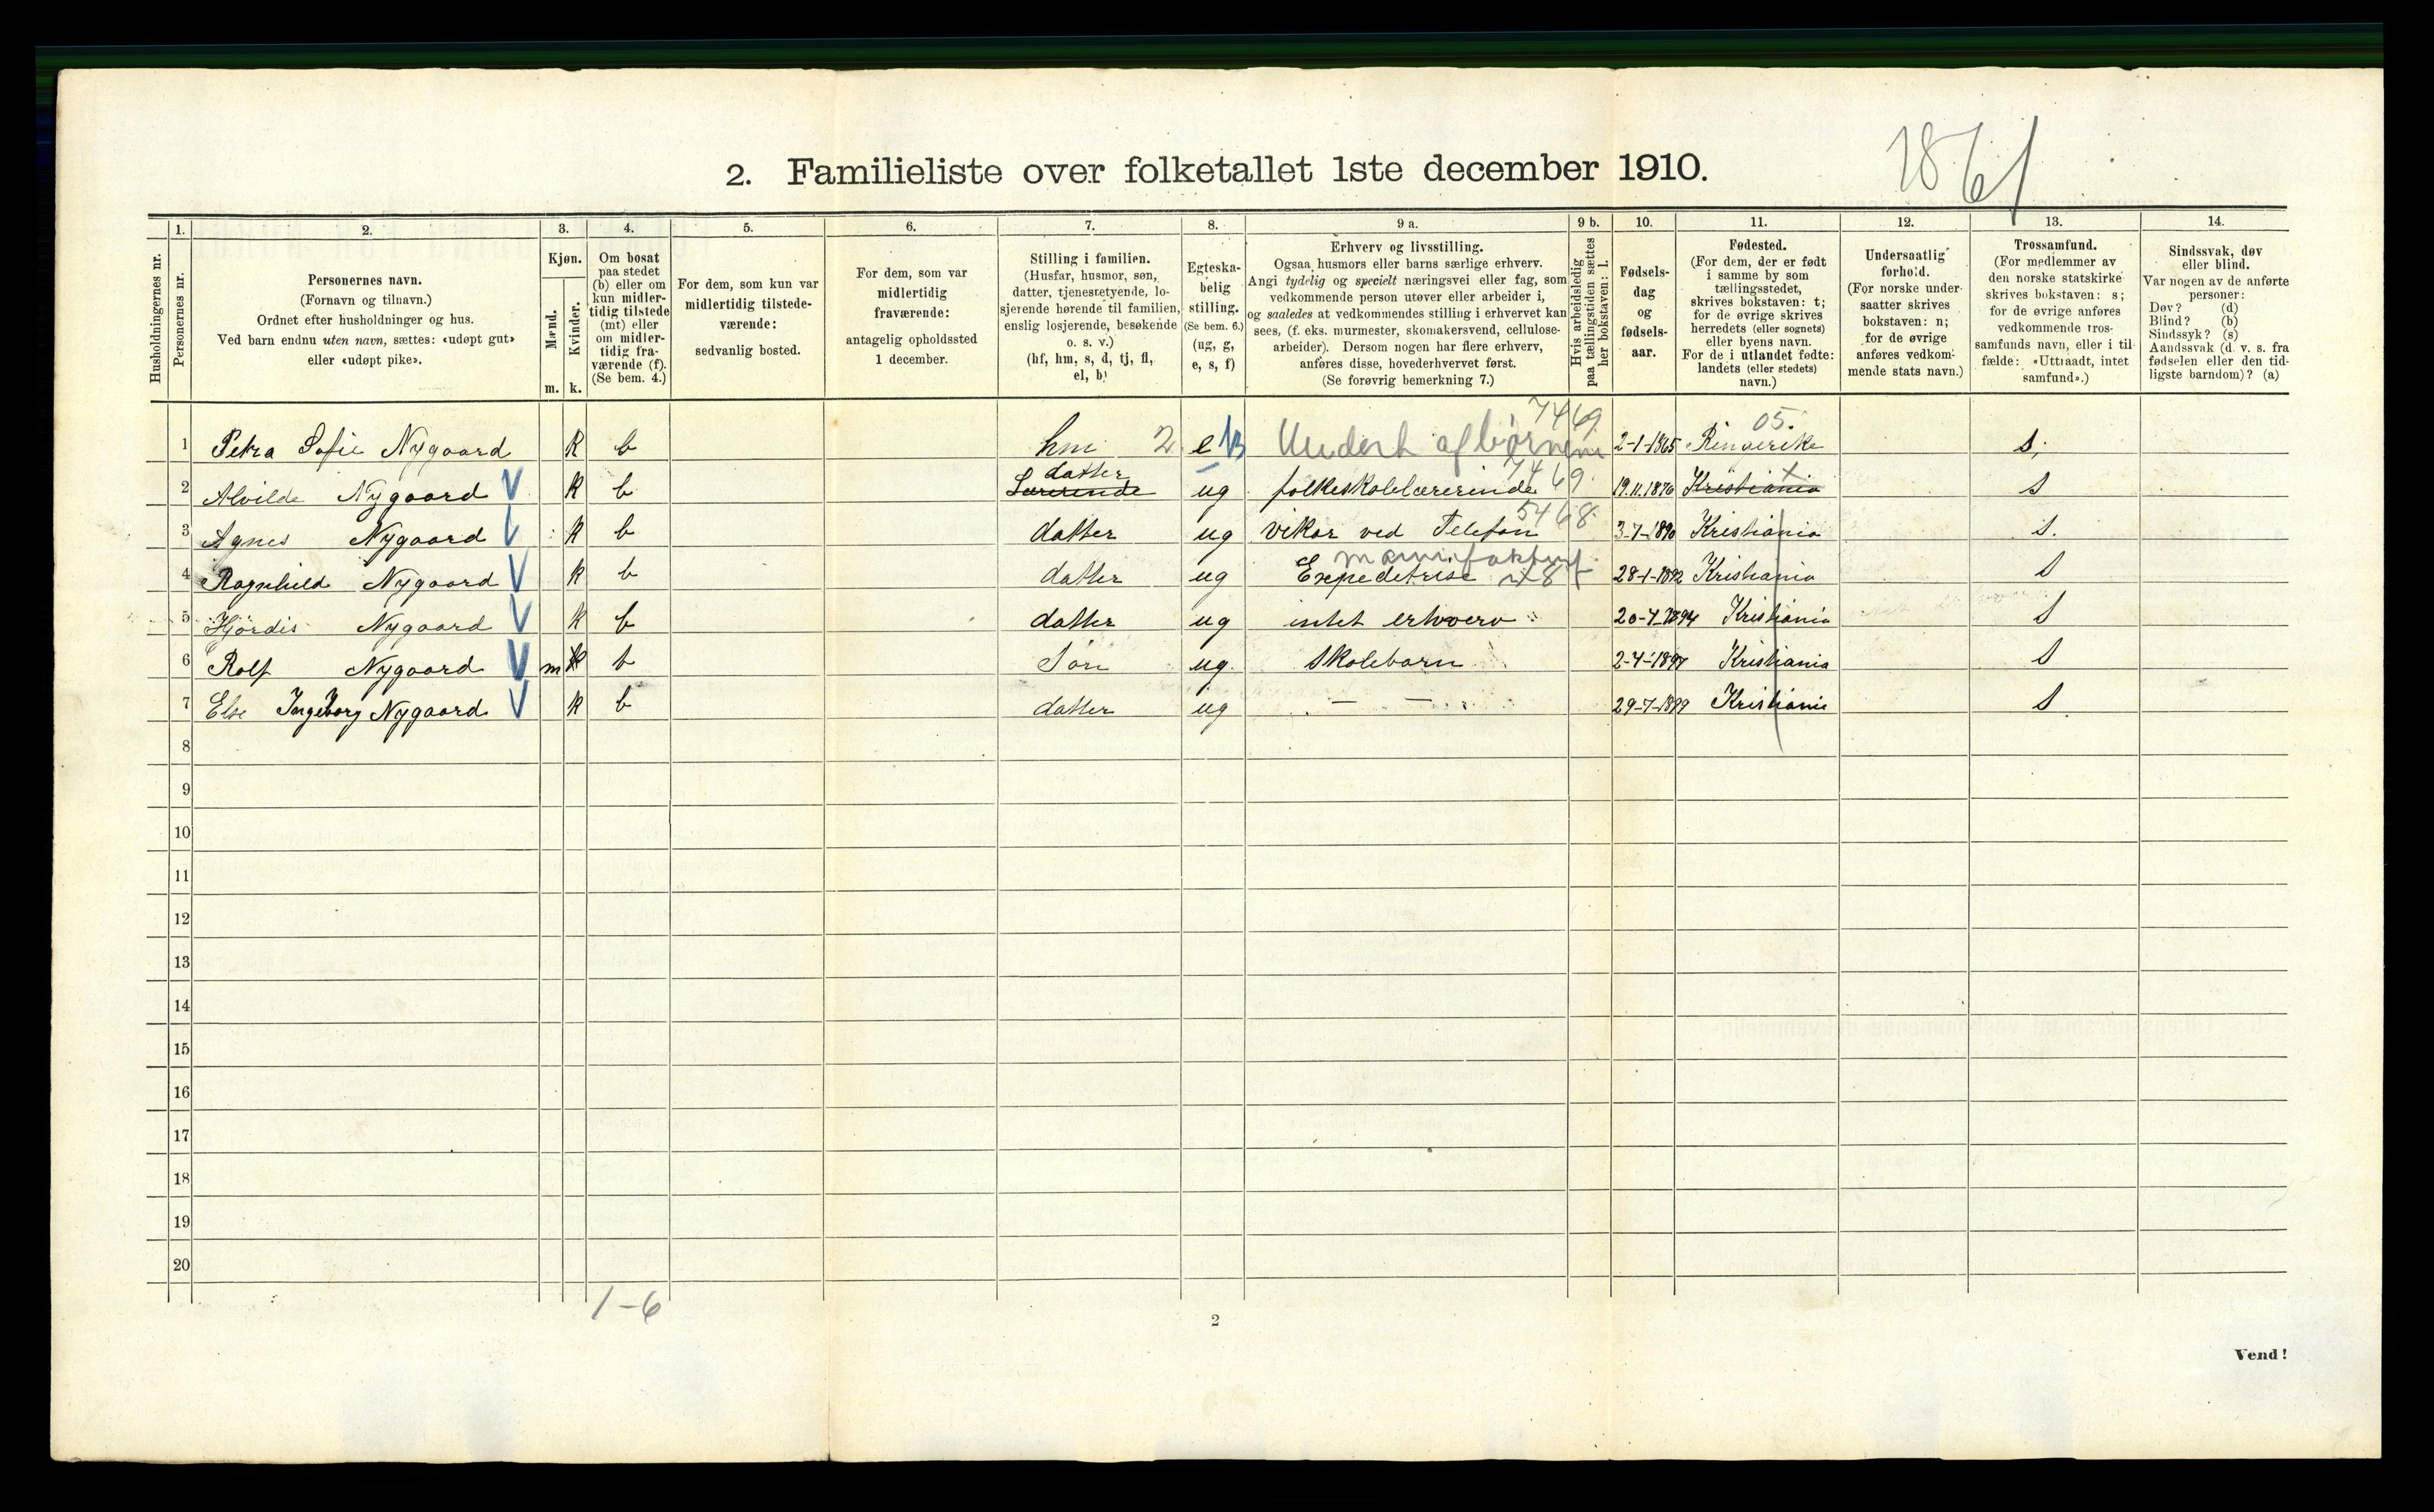 1861
2. Familieliste over folketallet 1ste december 1910.
1. 2. 3. 4. 5. 6. 7. 8. 9 a. 9 b. 10. 11. 12. 13. 14.
Husholdningernes nr.
Personernes nr.
Personernes navn.
(Fornavn og tilnavn.)
Ordnet efter husholdninger og hus.
Ved barn endnu uten navn, sættes: «udøpt gut»
eller «udøpt pike».
Kjøn.
Mænd.
m.
Kvinder.
k.
Om bosat
paa stedet
(b) eller om
kun midler-
tidig tilstede
(mt) eller
om midler-
tidig fra-
værende (f).
(Se bem. 4.)
For dem, som kun var
midlertidig tilstede-
værende:
sedvanlig bosted.
For dem, som var
midlertidig
fraværende:
antagelig opholdssted
1 december.
Stilling i familien.
(Husfar, husmor, søn,
datter, tjenestetyende, lo-
sjerende hørende til familien,
enslig losjerende, besøkende
o. s. v.)
(hf, hm, s, d, tj, fl,
el, b)
Egteska-
belig
stilling.
(Se bem. 6.)
(ug, g,
e, s, f)
Erhverv og livsstilling.
Ogsaa husmors eller barns særlige erhverv.
Angi tydelig og specielt næringsvei eller fag, som
vedkommende person utøver eller arbeider i,
og saaledes at vedkommendes stilling i erhvervet kan
sees, (f. eks. murmester, skomakersvend, cellulose-
arbeider). Dersom nogen har flere erhverv,
anføres disse, hovederhvervet først.
(Se forøvrig bemerkning 7.)
Hvis arbeidsledig
paa tællingstiden sættes
her bokstaven: l.
Fødsels-
dag
og
fødsels-
aar.
Fødested.
(For dem, der er født
i samme by som
tællingsstedet,
skrives bokstaven: t;
for de øvrige skrives
herredets (eller sognets)
eller byens navn.
For de i utlandet fødte:
landets (eller stedets)
navn.)
Undersaatlig
forhold.
(For norske under-
saatter skrives
bokstaven: n;
for de øvrige
anføres vedkom-
mende stats navn.)
Trossamfund.
(For medlemmer av
den norske statskirke
skrives bokstaven: s;
for de øvrige anføres
vedkommende tros-
samfunds navn, eller i til-
fælde: «Uttraadt, intet
samfund».)
Sindssvak, døv
eller blind.
Var nogen av de anførte
personer:
Døv? (d)
Blind? (b)
Sindssyk? (s)
Aandssvak (d. v. s. fra
fødselen eller den tid-
ligste barndom)? (a)
7469 05.
1 Petra Sofie Nygaard k b hm 2 e Underh af børnene 2-1-1865 Ringerike s.
datter 7469 x
2 Alvilde Nygaard V k b Lærerinde ug folkeskolelærerinde 19.11.1876 Kristiania s
5468
3 Agnes Nygaard V k b datter ug vikar ved Telefon 3-7-1890 Kristiania s.
manufaktur
4 Ragnhild Nygaard V k b datter ug Expeditrise 28-1-1892 Kristiania s
5 Hjørdis Nygaard V k b datter ug intet erhverv 20-7-1894 Kristiania s
6 Rolf Nygaard V m k b Søn ug. Skolebarn 2-4-1897 Kristiania s
7 Else Ingeborg Nygaard V k b datter ug — — 29-7-1899 Kristiania s.
8
9
10
11
12
13
14
15
16
17
18
19
20
1-6
2
Vend!